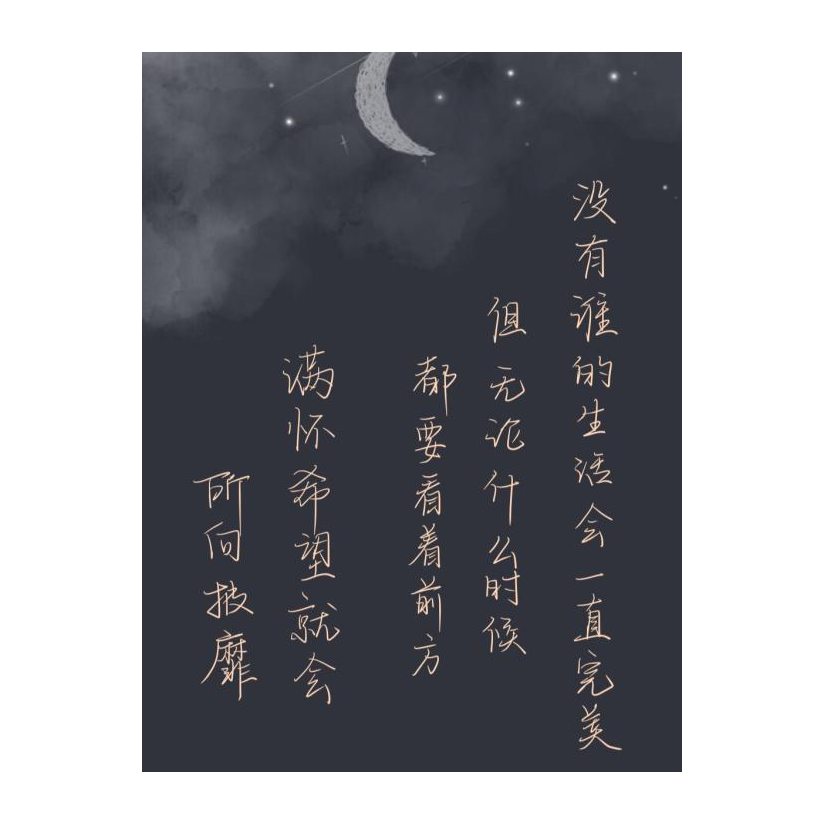 没有谁的生活会一直完美
但无论什么时候
都要看着前方
满怀希望就会
所向披靡